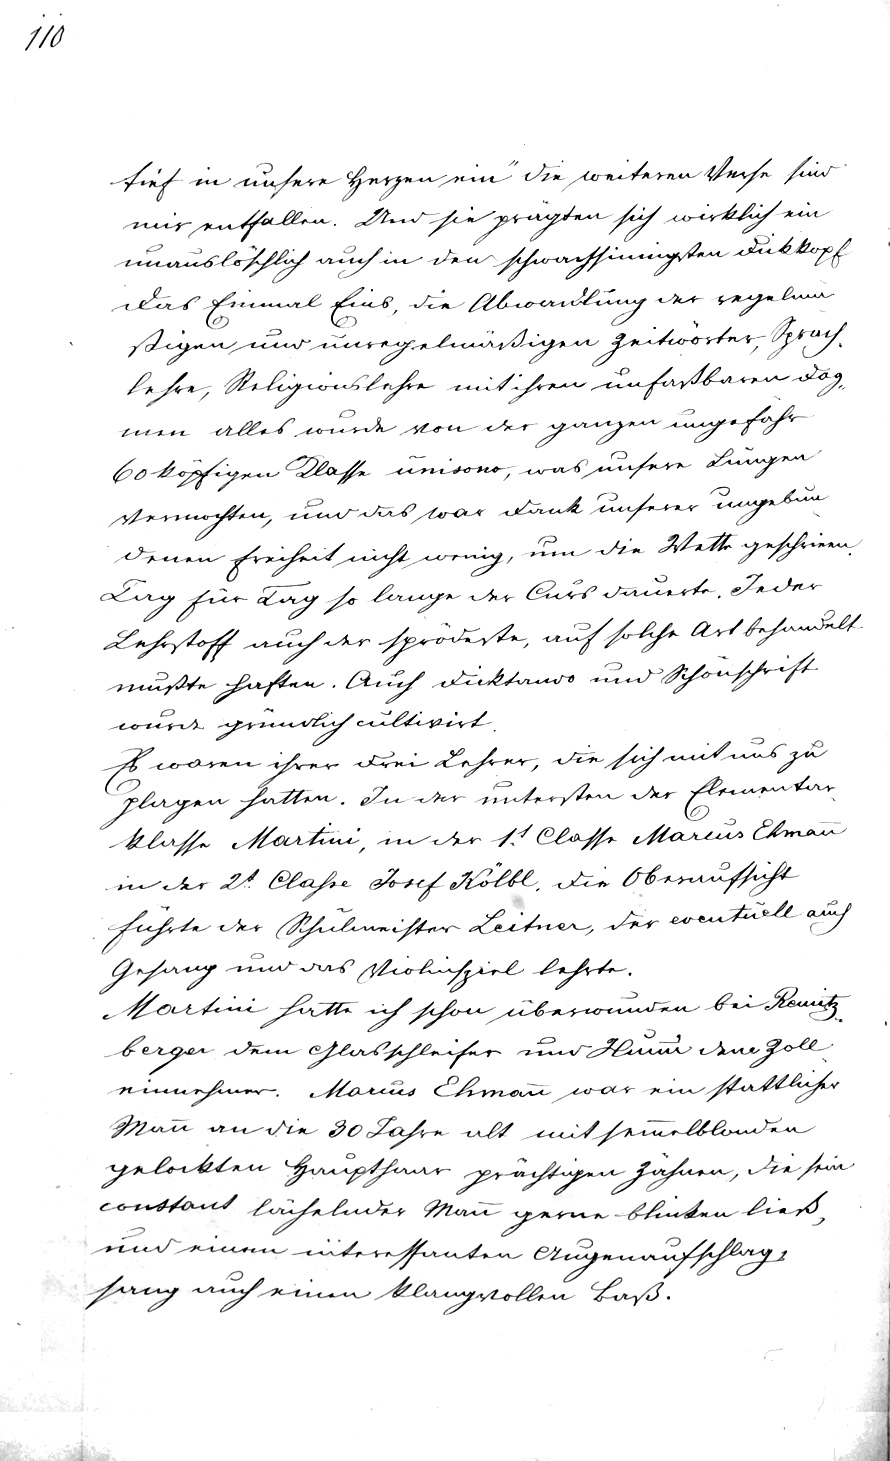 110
tief in unsere Herzen ein" die weiteren Verse sind
mir entfallen. Und sie prägten sich wirklich ein
unauslöschlich auch in den schwachsinnigsten Dickkopf
das Einmal Eins, die Abwandlung der regelmä
ßigen und unregelmäßigen Zeitwörter, Sprach-
lehre, Religionslehre mit ihren unfaßbaren Dog-
men alles wurde von der ganzen ungefähr
60 köpfigen Klasse unisono, was unsere Lungen
vermochten, und das war Dank unserer ungebun
denen Freiheit nicht wenig, um die Wette geschrieen.
Tag für Tag so lange der Curs dauerte. Jeder
Lehrstoff auch der sprödeste, auf solche Art behandelt
mußte haften. Auch Dicktando und Schönschrift
wurde gründlich cultivirt.
Es waren ihrer drei Lehrer, die sich mit uns zu
plagen hatten. In der untersten der Elementar
klasse Martini, in der 1t. Classe Marcus Ehmañ
in der 2t. Classe Josef Kölbl. Die Oberaufsicht
führte der Schulmeister Leitner, der eventuell auch
Gesang und das Violinspiel lehrte.
Martini hatte ich schon überwunden bei
berger dem Glasschleifer und dem Zoll
einnehmer. Marcus Ehmañ war ein stattlicher
Mañ an die 30 Jahre alt mit sem̃elblonden
gelockten Haupthaar prächtigen Zähnen, die sein
constant lächelnder Mañ gerne blinken ließ,
und einen interessanten Augenaufschlag,
sang auch einen klangvollen Baß.